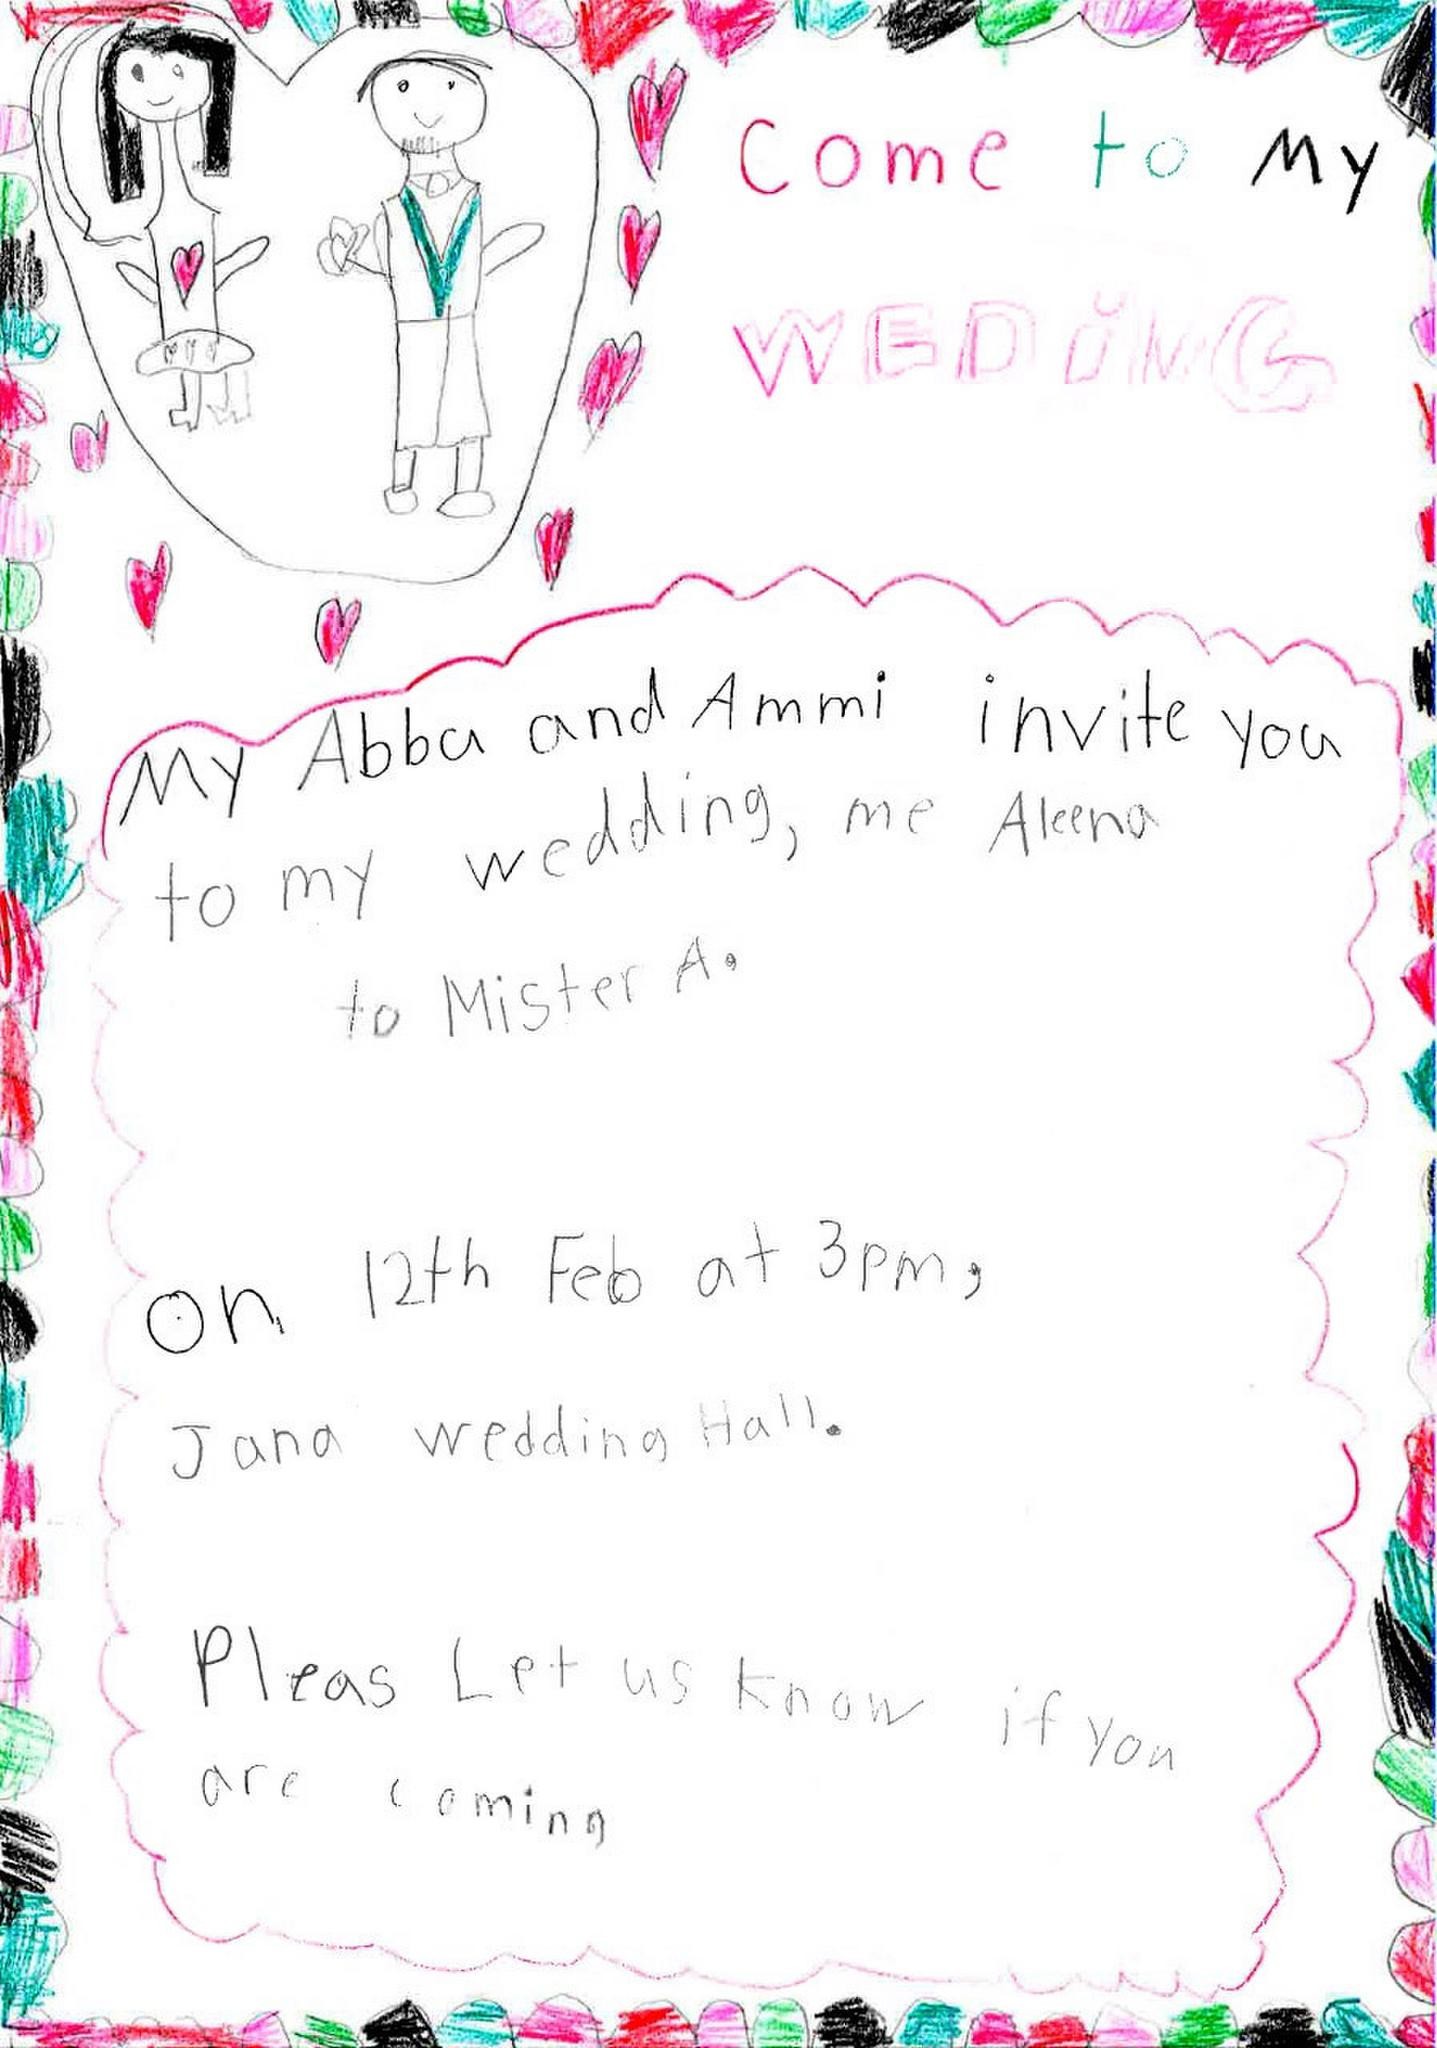 Come to My
WEDING
My Abba and Ammi invite you
to my wedding, me Aleena
to Mister A.
On 12th Feb at 3pm,
Jana wedding Hall.
Pleas Let us know if you
are coming